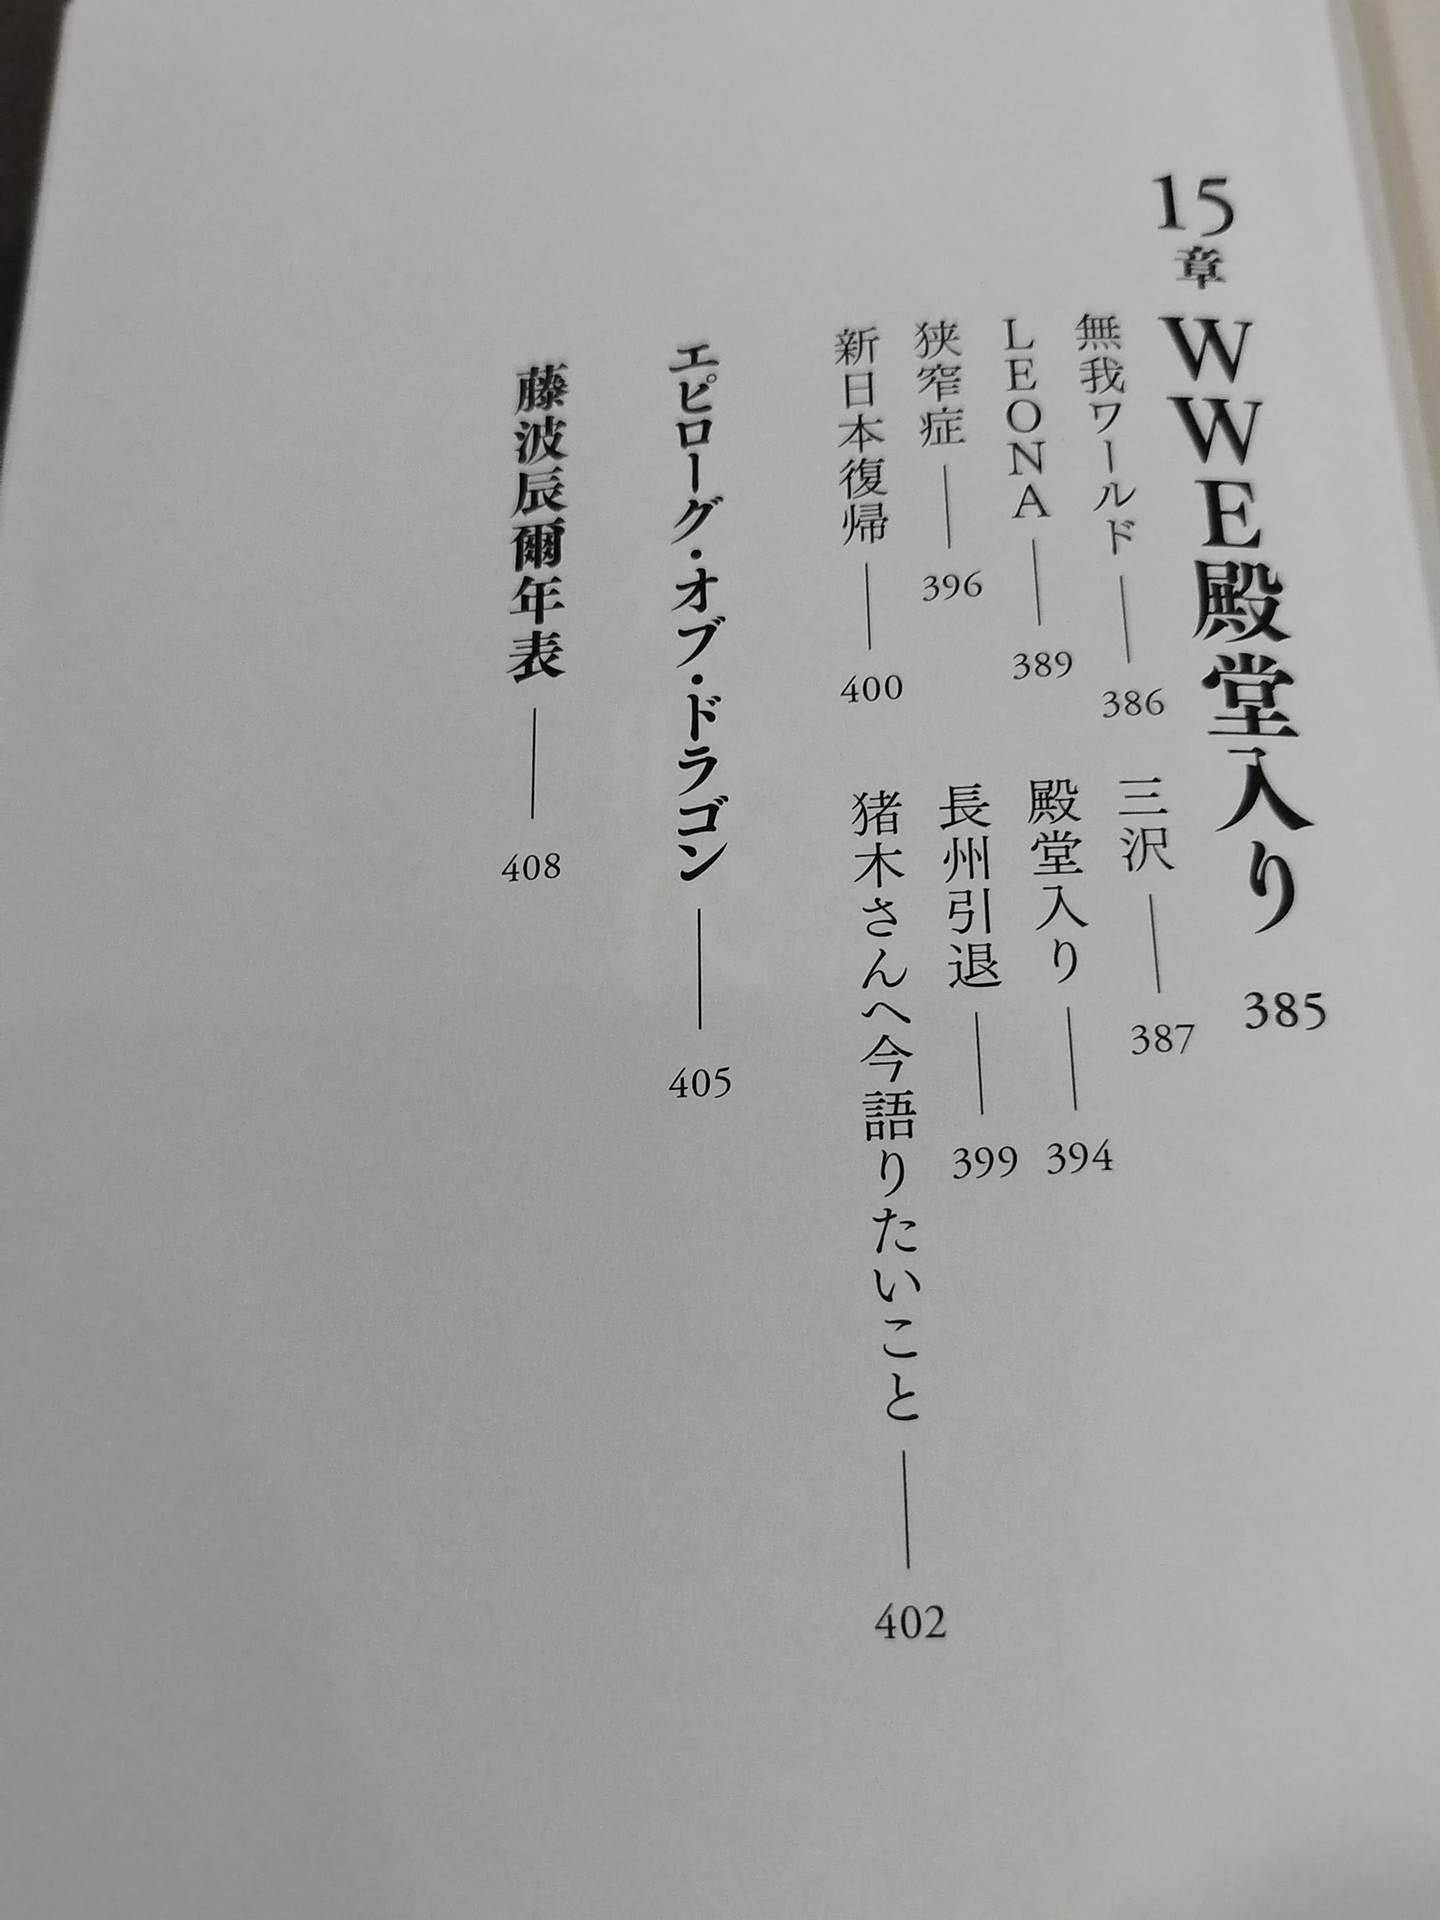 15章 WWE殿堂入り 385
無我ワールド 386 三沢 387
LEONA 389 殿堂入り 394
狭窄症 396 長州引退 399
新日本復帰 400 猪木さんへ今語りたいこと 402
エピローグ・オブ・ドラゴン 405
藤波辰爾年表 408